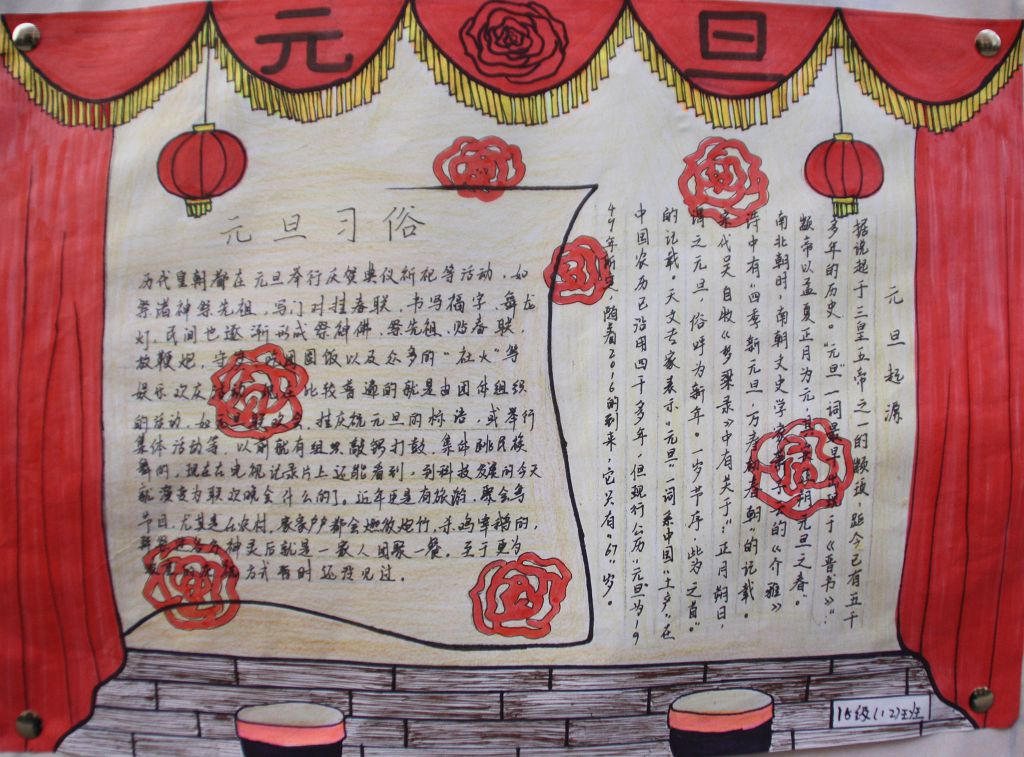 元旦
元旦习俗
历代皇朝都在元旦举行庆贺典仪祈祀等活动，如
祭诸神祭先祖，写门对挂春联，书写福字、舞龙
灯，民间也逐渐形成祭神佛、祭先祖、贴春联、
放鞭炮、守岁、吃团圆饭以及众多的“社火”等
娱乐欢庆活动。现在比较普遍的就是由团体组织
的活动，如元旦联欢会、挂庆祝元旦的标语，或举行
集体活动等，以前就有组织敲锣打鼓，集体跳民族
舞的，现在在电视记录片上还能看到，到科技发展的今天
就演变为联欢晚会什么的了。近年更是有旅游、聚会等
节目，尤其是在农村，家家户户都会燃放炮竹，杀鸡宰鹅的，
神灵后就是一家人团聚一餐。至于更为
方式暂时还没见过。
元旦起源
据说起于三皇五帝之一的颛顼，距今已有五千
多年的历史。“元旦”一词最早出现于《晋书》：“
颛帝以孟夏正月为元，其实正朔元旦之春”。
南北朝时，南朝文史学家萧子云的《介雅》
诗中有“四季新元旦，万寿初春朝”的记载。
宋代吴自牧《梦粱录》中有关于：“正月朔日，
谓之元旦，俗呼为新年。一岁节序，此为之首”
的记载，天文专家表示“元旦”一词系中国“土产”在
中国农历已沿用四千多年，但现行公历“元旦”为19
49年所定，随着2016的到来，它只有“67”岁。
15级(12)班